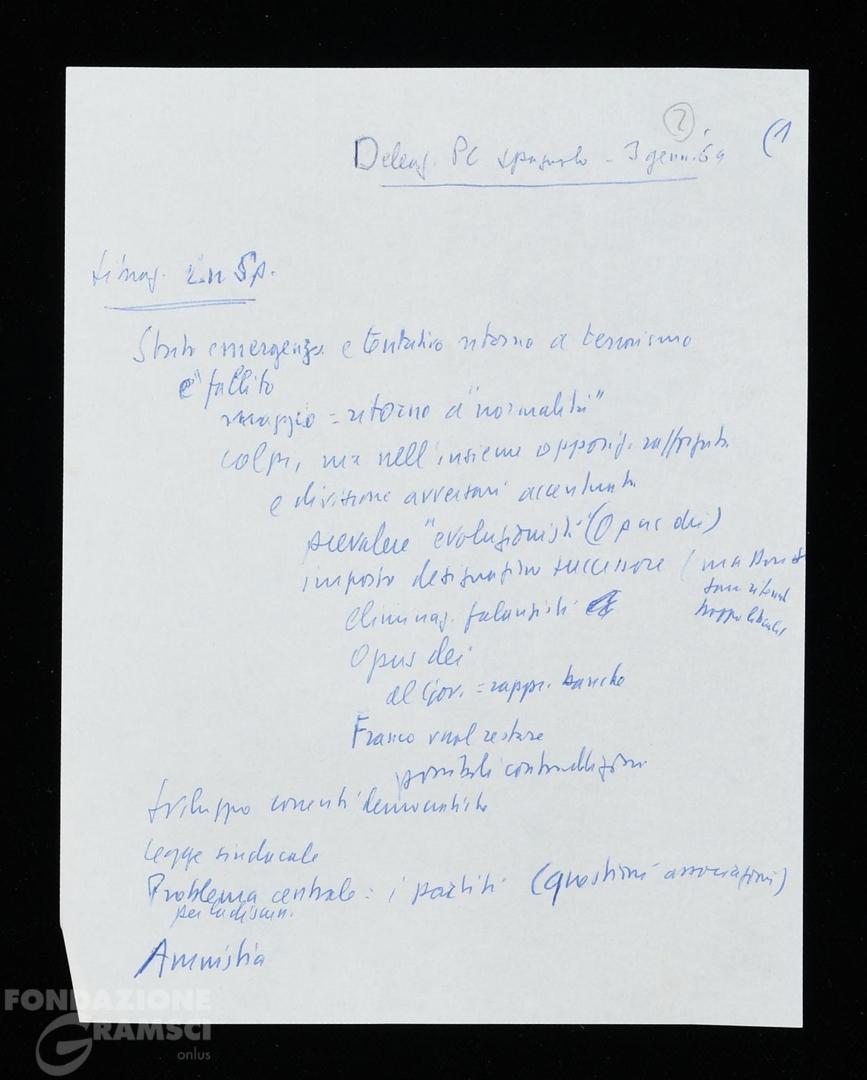 2
(1
Deleg. PC spagnolo - 3 genn.
Situaz. in Sp.
Stato emergenza e tentativo ritorno a terrorismo
è fallito
maggio = ritorno a "normalità"
colpi, ma nell'insieme opposiz. rafforzata
e divisione avversari accentuata
prevalere "evoluzionisti" (Opus dei)
imposto designazione successore (ma
troppo liberale
eliminaz. falangisti
Opus dei
al Gov. = rappr. banche
Franco vuol restare
possibili contraddizioni
Sviluppo correnti democratiche
Legge sindacale
Problema centrale: i partiti (questione associazioni)
per la discuss.
Amnistia
FONDAZIONE
GRAMSCI
onlus